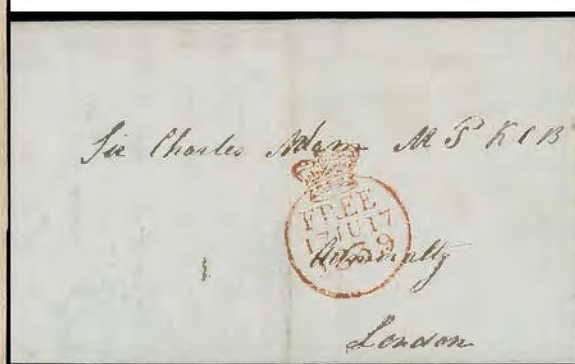 Sir Charles Adam M P K C B
FREE
17 JU 17
1839
Admiralty
London